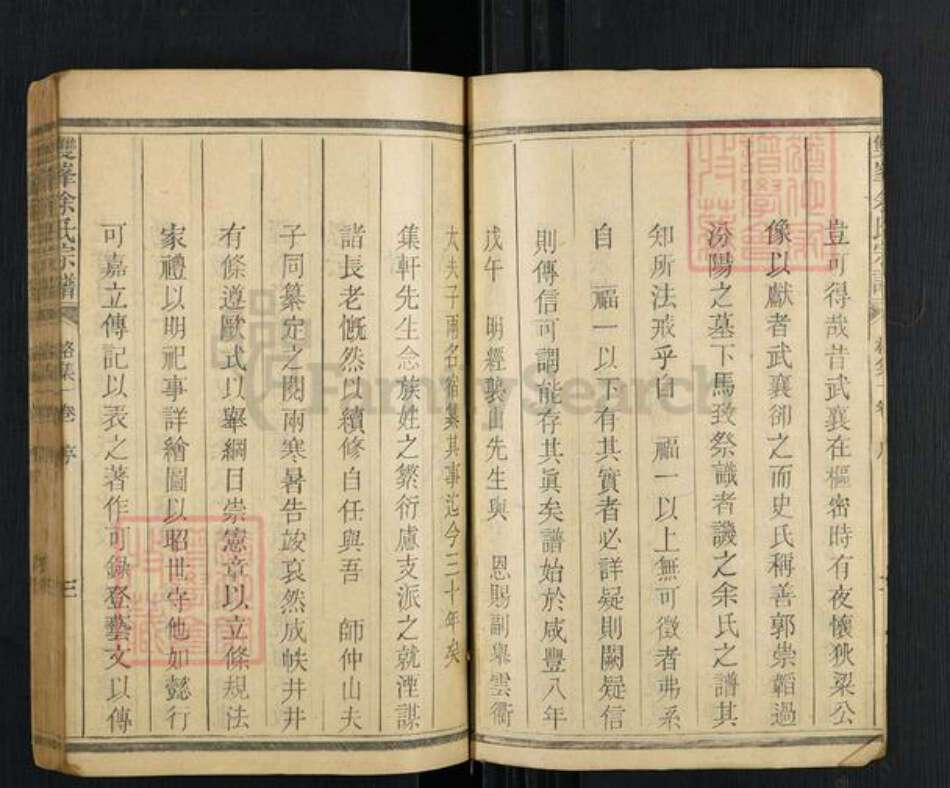 豈可得哉昔武襄在樞密時有夜懷狄梁公
像以獻者武襄卻之而史氏稱善郭崇韜過
汾陽之墓下馬致祭識者譏之余氏之譜其
知所法戒乎自 福一以上無可徵者弗系
自 福一以下有其實者必詳疑則闕疑信
則傳信可謂能存其眞矣譜始於咸豐八年
戊午 明經裴山先生與 恩賜副舉雲衢
太夫子兩名宿纂其事迄今三十年矣
集軒先生念族姓之繁衍慮支派之就湮謀
諸長老慨然以續修自任與吾 師仲山夫
子同纂定之閱兩寒暑告竣裒然成帙井井
有條遵歐式以舉綱目崇憲章以立條規法
家禮以明祀事詳繪圖以昭世守他如懿行
可嘉立傳記以表之著作可錄登藝文以傳
雙峯余氏宗譜
卷一 序 三
FamilySearch